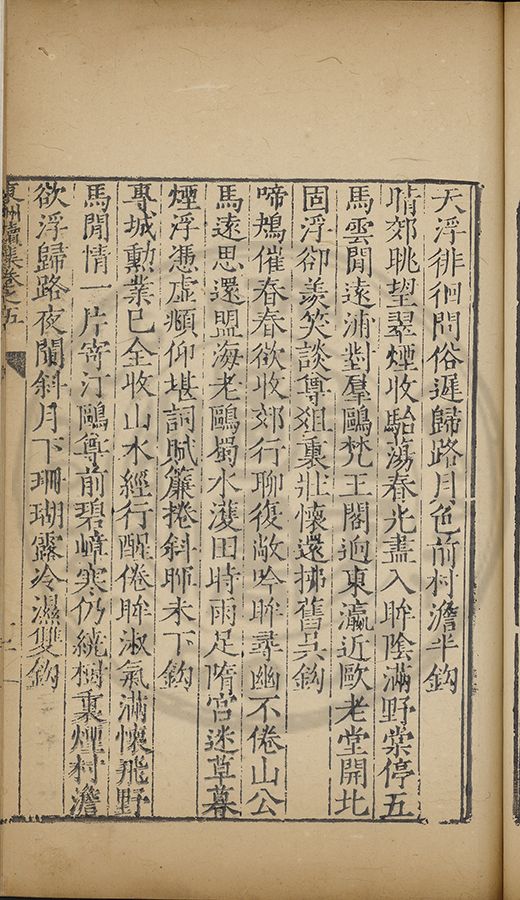 天浮徘徊問俗遲歸路月色前村澹半鈎
晴郊眺望翠煙收駘蕩春光盡入眸陰滿野棠停五
馬雲閒遠浦對羣鷗梵王閣迥東瀛近歐老堂開北
固浮卻羨笑談尊俎裏壯懷還拂舊吳鈎
啼鴂催春春欲收郊行聊復敞吟眸尋幽不倦山公
馬遠思還盟海老鷗蜀水濩田時雨足隋宮迷草暮
煙浮憑虛頫仰堪詞賦簾捲斜未下鈎
專城勳業已全收山水經行醒倦眸淑氣滿懷飛野
馬閒情一片寄汀鷗尊前碧嶂寒仍繞樹裏煙村澹
欲浮歸路夜闌斜月下珊瑚露冷濕雙鈎
東洲續集卷之五